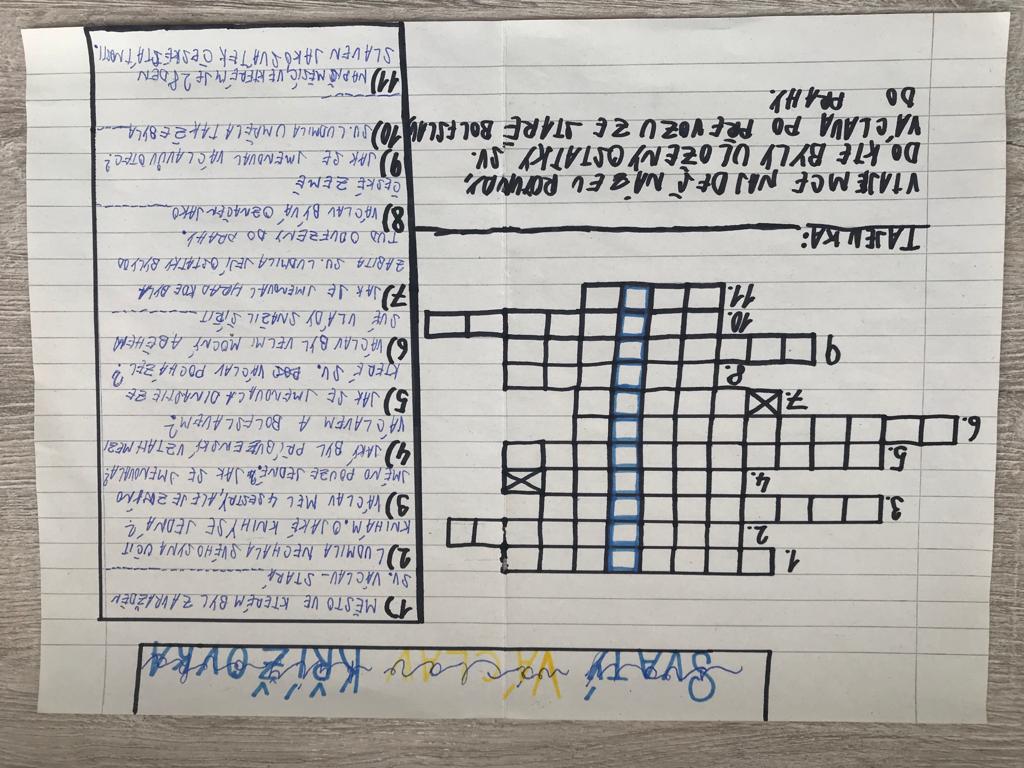 Svatý václav VÁCLAV KŘÍŽOVKA
1) MĚSTO VE KTERÉM BYL ZAVRAŽDĚN
SV. VÁCLAV - STARÁ
2) LUDMILA NECHALA SVÉHO SYNA UČIT
KNIHÁM. O JAKÉ KNIHY SE JEDNÁ?
3) VÁCLAV MĚL 4 SESTRY, ALE JE ZNÁMO
JMÉNO POUZE JEDNÉ. JAK SE JMENOVALA?
4) JAKÝ BYL PŘÍBUZENSKÝ VZTAH MEZI
VÁCLAVEM A BOLESLAVEM?
5) JAK SE JMENUJE DINASTIE ZE
KTERÉ SV. POCHÁZEL?
6) VÁCLAV BYL VELMI MOCNÝ A BĚHEM
SVÉ VLÁDY SNAŽIL ŠÍŘIT
7) JAK SE JMENOVAL HRAD KDE BYLA
ZABITA SV. LUDMILA JEJÍ OSTATKY BYLY OD
TUD ODVEZENY DO PRAHY.
8) VÁCLAV BÝVÁ OZNAČEN JAKO
ČESKÉ ZEMĚ
9) JAK SE JMENOVAL VÁCLAVŮV OTEC?
10) SV. LUDMILA UMĚLA TAKÉ ŽE BYLA
11) NAPIŠ MĚSÍC, VE KTERÉM JE 28 DEN
SLAVEN JAKO SVÁTEK ČESKÉ STÁTNOSTI.
1.
2.
3.
4.
5.
6.
7.
8.
9
10.
11.
TAJENKA:
V TAJEMCE NAJDEŠ NÁZEV ROTUNDY,
DO KTE BYLY ULOŽENY OSTATKY SV.
VÁCLAVA PO PŘEVOZU ZE STARÉ BOLESLAV
DO PRAHY.